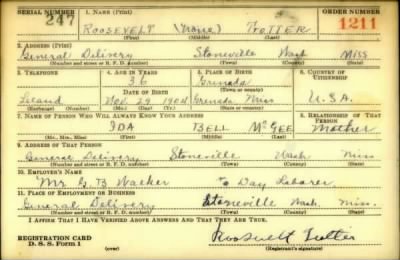 SERIAL NUMBER 1. NAME (Print) ORDER NUMBER
247 ROOSEVELT (None) TROTTER 1211
(First) (Middle) (Last)
2. ADDRESS (Print)
General Delivery Stoneville Wash Miss
(Number and street or R. F. D. number) (Town) (County) (State)
3. TELEPHONE 4. AGE IN YEARS 5. PLACE OF BIRTH 6. COUNTRY OF CITIZENSHIP
36 Grenada
DATE OF BIRTH (Town or county)
Leland Nov. 29 1904 Grenada Miss U.S.A.
(Exchange) (Number) (Mo.) (Day) (Yr.) (State or country)
7. NAME OF PERSON WHO WILL ALWAYS KNOW YOUR ADDRESS 8. RELATIONSHIP OF THAT PERSON
IDA BELL McGEE Mother
(Mr., Mrs., Miss) (First) (Middle) (Last)
9. ADDRESS OF THAT PERSON
General Delivery Stoneville Wash Miss
(Number and street or R. F. D. number) (Town) (County) (State)
10. EMPLOYER'S NAME
Mr. G. B. Walker Day Laborer
11. PLACE OF EMPLOYMENT OR BUSINESS
General Delivery Stoneville Wash. Miss.
(Number and street or R. F. D. number) (Town) (County) (State)
I AFFIRM THAT I HAVE VERIFIED ABOVE ANSWERS AND THAT THEY ARE TRUE.
REGISTRATION CARD Roosevelt Trotter
D. S. S. Form 1 (over) (Registrant's signature)